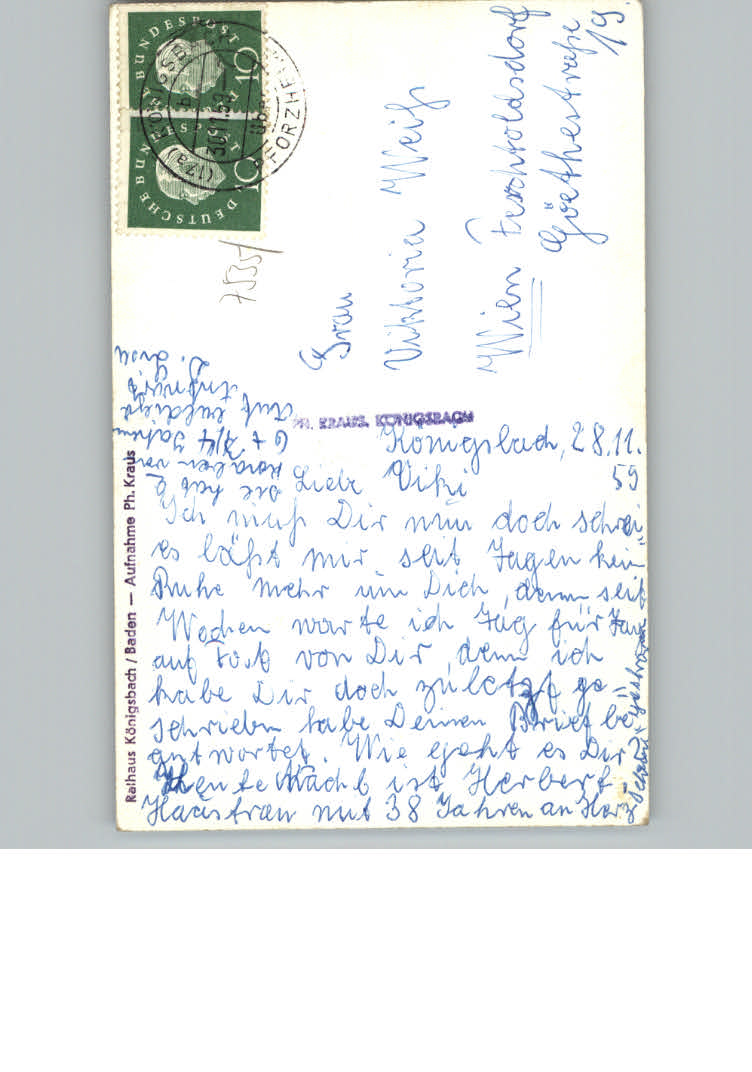 DEUTSCHE BUNDESPOST
10
DEUTSCHE BUNDESPOST
10
(17a) KÖNIGSBACH
b
30.11.59
über PFORZHEIM
75351
Frau
Viktoria Weiß
Wien Perchtoldsdorf
Göethestraße
19
PH. KRAUS, KÖNIGSBACH
Rathaus Königsbach / Baden — Aufnahme Ph. Kraus
Königsbach, 28.11.
59
Liebe Viki
Ich muß Dir nun doch schrei-
es läßt mir seit Tagen kein
Ruhe mehr um Dich, denn seit
Wochen warte ich Tag für Tag
auf Post von Dir, denn ich
habe Dir doch zuletzt ge-
schrieben habe Deinen Brief be
antwortet. Wie geht es Dir
Heute Nacht ist Herbert
Haas frau mit 38 Jahren an Herz
gestorben
sie hat 2
Knaben von
6 + 3/4 Jahren